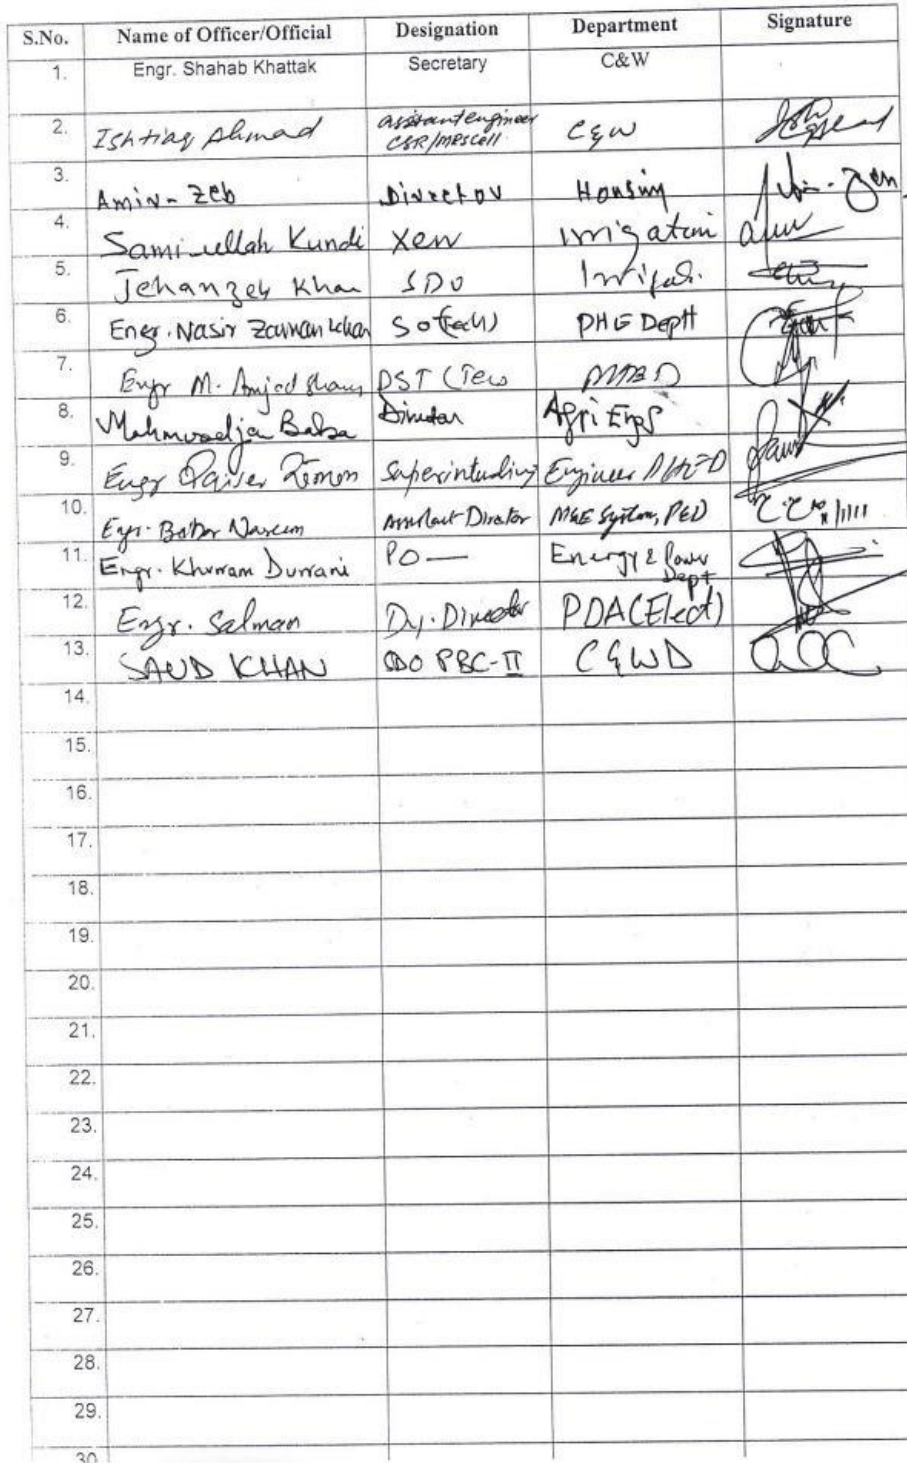 S.No. Name of Officer/Official Designation Department Signature
1. Engr. Shahab Khattak Secretary C&W
2. Ishtiaq Ahmad assistant engineer C&W
CSR/MRS Cell
3. Amir-Zeb Director Housing
4. Sami-ullah Kundi Xen Irrigation
5. Jehanzeb Khan SDO Irrigati.
6. Engr. Nasir Zaman Khan SO(Tech) PHE Deptt
7. Engr M. Amjad
8. Director Agri Engg
9. Engr Superintending Engineer
10. Engr. Babar Naseem Assistant Director M&E System, PED
11. Engr. Khurram Durrani PO— Energy & Power
Dept
12. Engr. Salman Dy. Director PDA(Elect)
13. SAUD KHAN SDO PBC-II C&WD
14.
15.
16.
17.
18.
19.
20.
21.
22.
23.
24.
25.
26.
27.
28.
29.
30